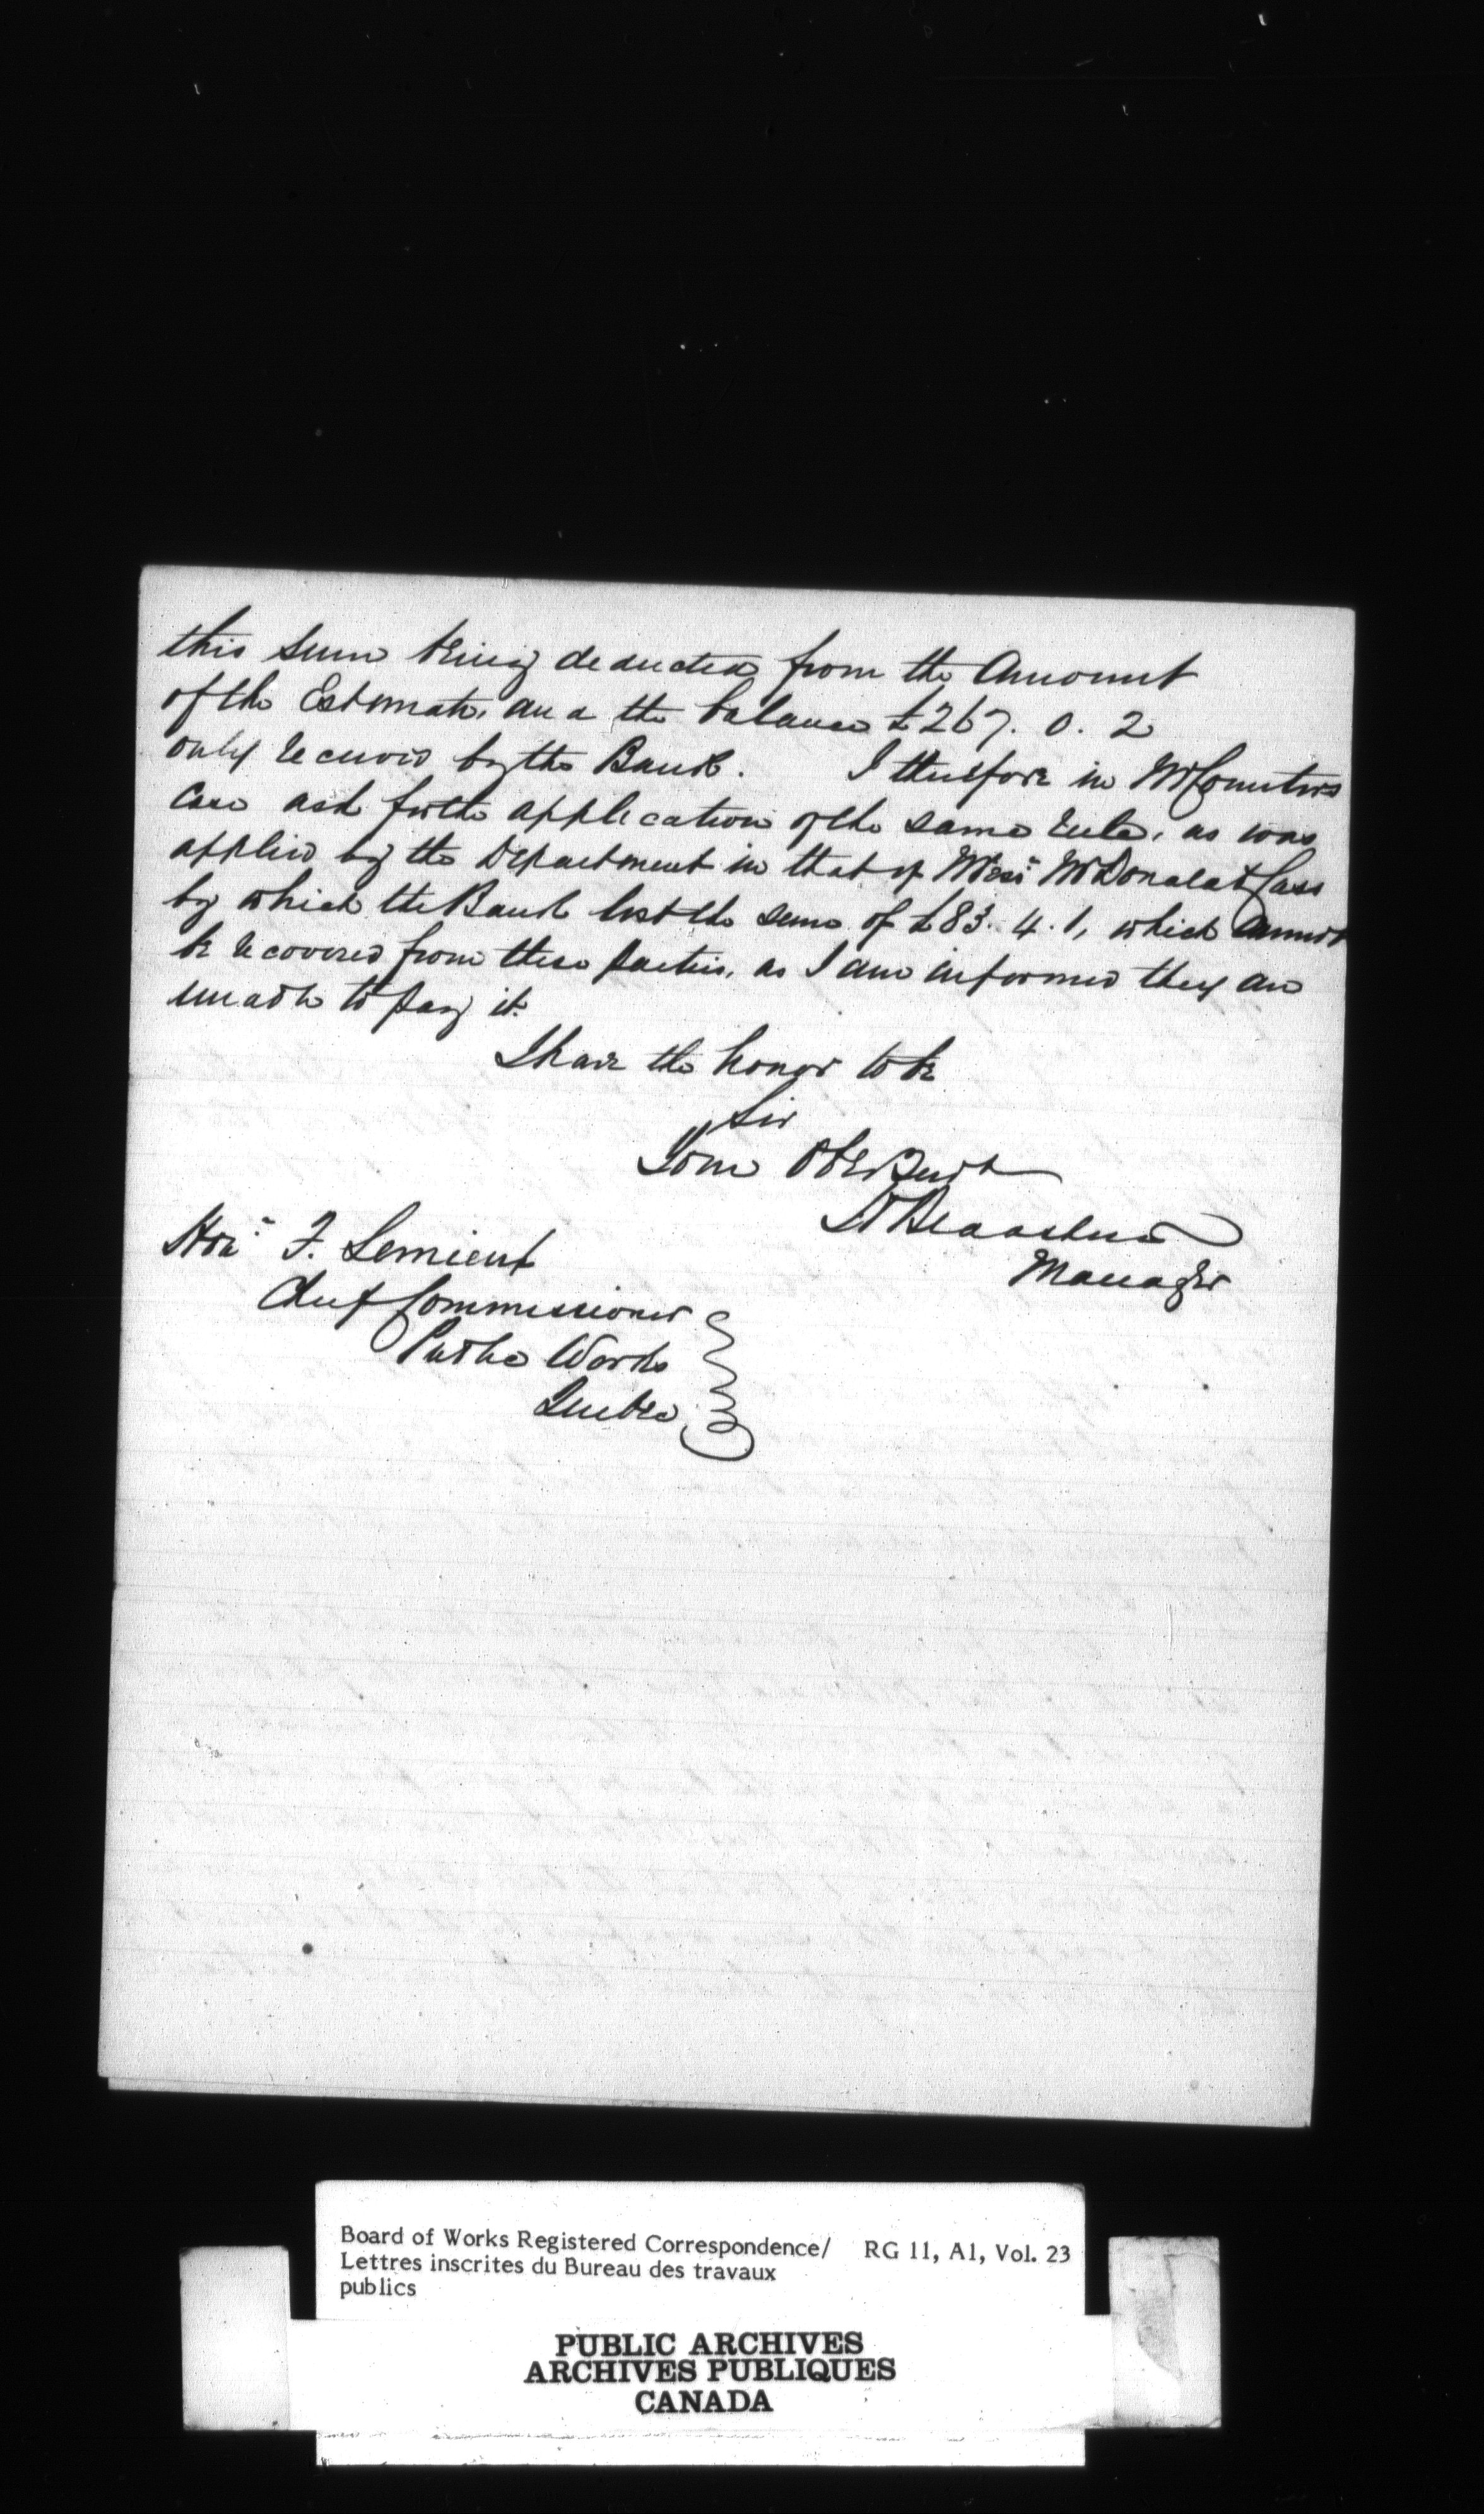 this sum being deducted from the Amount
of the Estimate, and the balance £267. 0. 2
only received by the Bank. I therefore in Mr
case ask for the application of the same rule, as was
applied by the Department in that of Messrs McDonald & Cass
by which the Bank lost the sum of £83. 4. 1, which cannot
be recovered from these parties, as I am informed they are
unable to pay it.
I have the honor to be
Sir
Your Ob Ser
Manager
Hon. F. Lemieux
Chief Commissioner
Public Works
Quebec
Board of Works Registered Correspondence/ RG 11, A1, Vol. 23
Lettres inscrites du Bureau des travaux
publics
PUBLIC ARCHIVES
ARCHIVES PUBLIQUES
CANADA